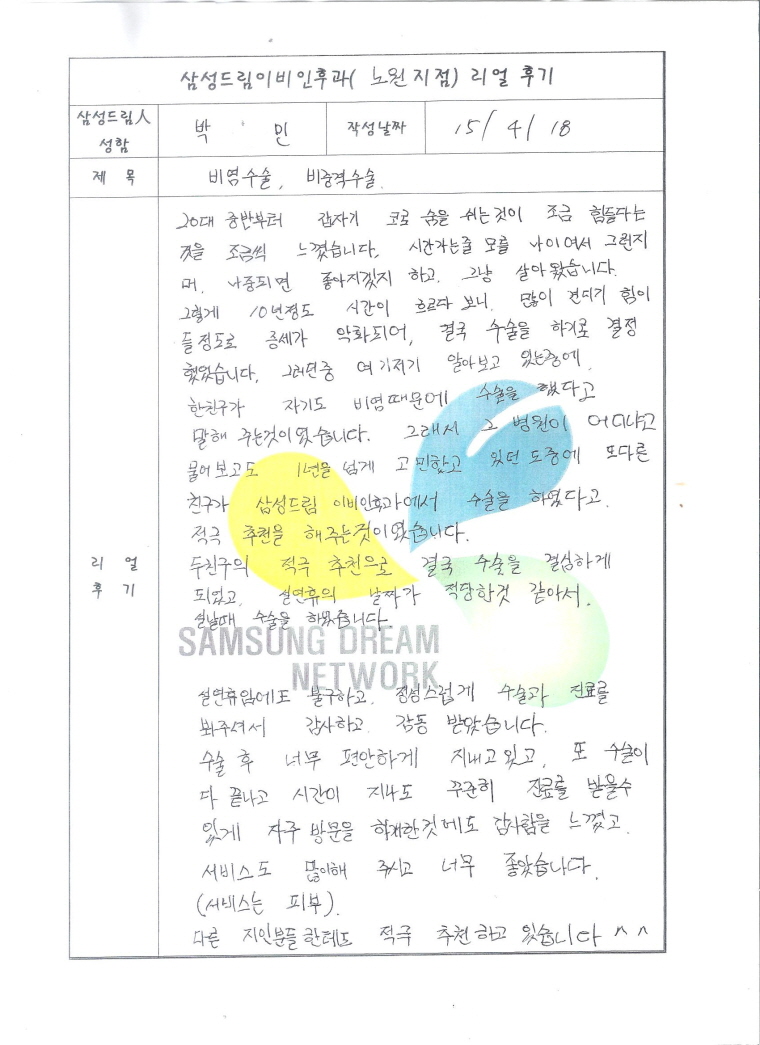 삼성드림이비인후과( 노원지점) 리얼 후기
삼성드림人
성함
박 민
작성날짜
15/ 4/ 18
제 목
비염수술, 비중격수술
리 얼
후 기
20대 중반부터 갑자기 코로 숨을 쉬는것이 조금 힘들다는
것을 조금씩 느꼈습니다. 시간가는줄 모를 나이여서 그런지
머. 나중되면 좋아지겠지 하고. 그냥 살아왔습니다.
그렇게 10년정도 시간이 흐르다 보니. 많이 견디기 힘이
들정도로 증세가 악화되어, 결국 수술을 하기로 결정
했었습니다. 그러던중 여기저기 알아보고 있는중에
한친구가 자기도 비염때문에 수술을 했다고
말해 주는것이였습니다. 그래서 그 병원이 어디냐고
물어보고도 1년을 넘게 고민했고 있던 도중에 또다른
친구가 삼성드림 이비인후과에서 수술을 하였다고.
적극 추천을 해주는것이였습니다.
두친구의 적극 추천으로 결국 수술을 결심하게
되었고, 설연휴의 날짜가 적당한것 같아서.
설날때 수술을 하였습니다.
SAMSUNG DREAM
NETWORK
설연휴임에도 불구하고. 정성스럽게 수술과 진료를
봐주셔서 감사하고 감동 받았습니다.
수술 후 너무 편안하게 지내고있고, 또 수술이
다 끝나고 시간이 지나도 꾸준히 진료를 받을수
있게 자주 방문을 하게한것에도 감사함을 느꼈고.
서비스도 많이해 주시고 너무 좋았습니다.
(서비스는 피부).
다른 지인분들한테도 적극 추천하고 있습니다 ^^